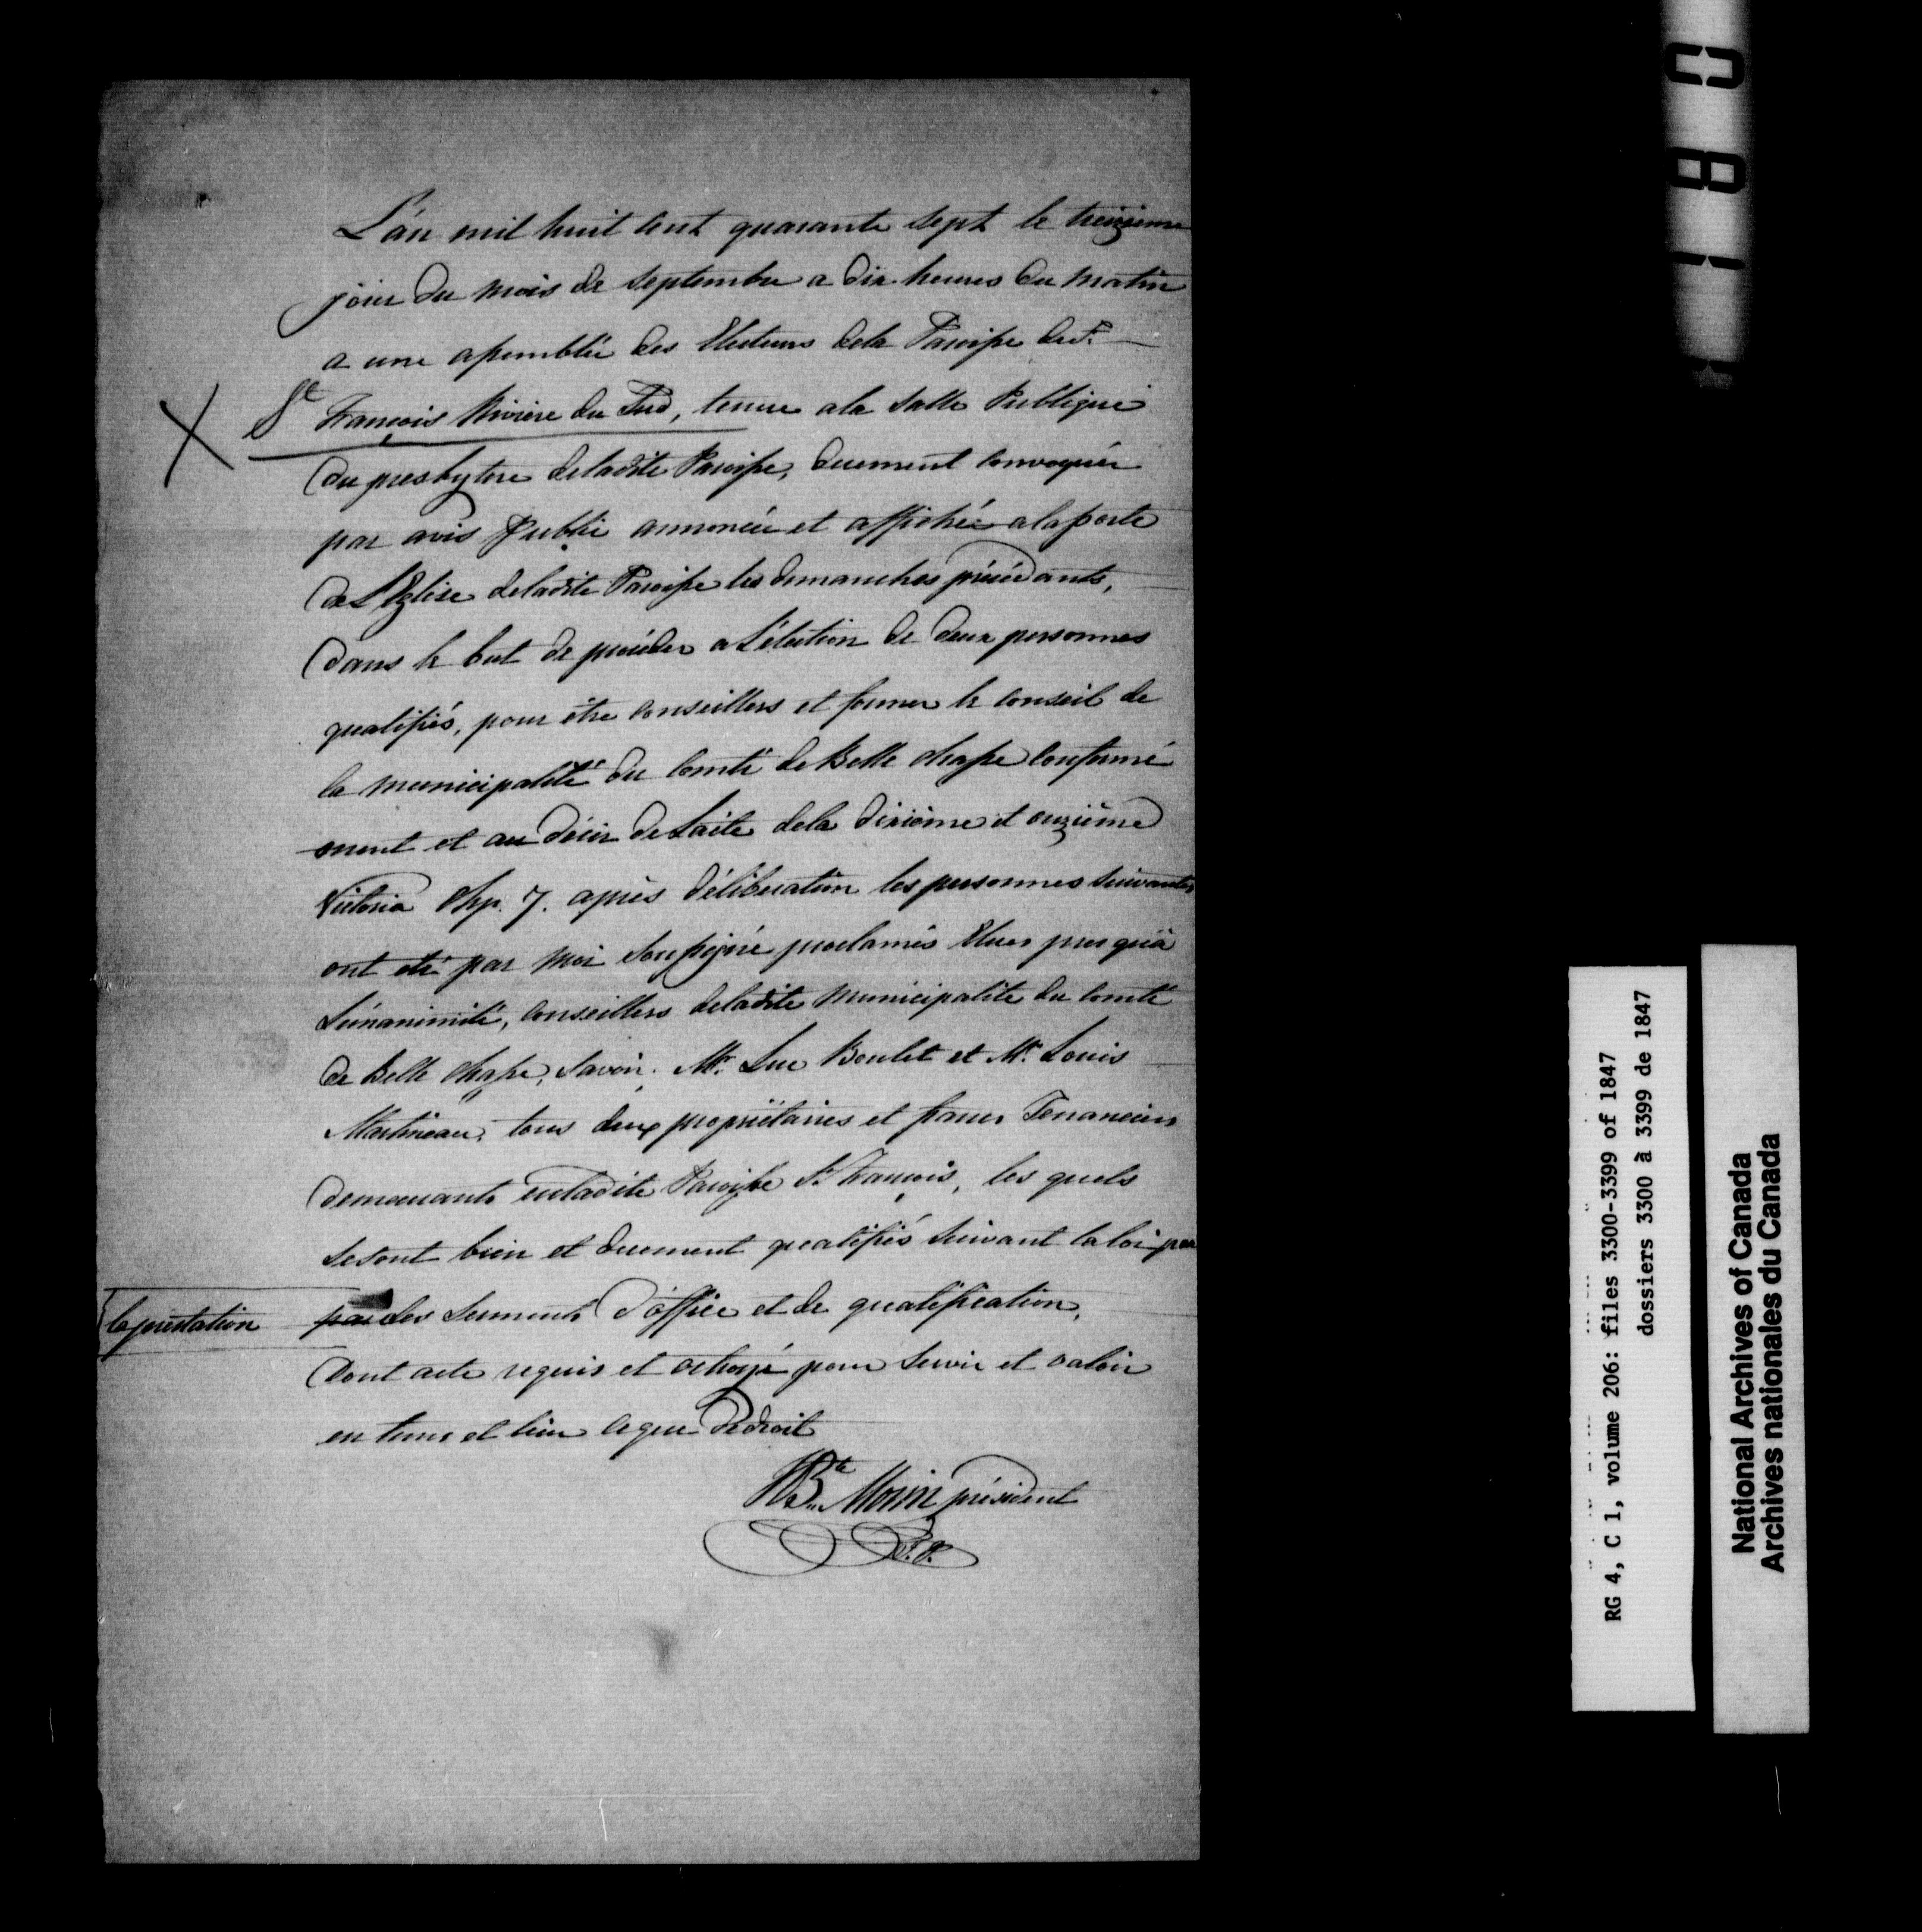 L'an mil huit cent quarante sept le treizieme
jour du mois de septembre a dix heures du matin
a une assemblée des Electeurs dela Paroisse de St.
St François Rivière du Sud, tenue ala salle Publique
du presbytere deladite Paroisse, duement convoquée
par avis Public annoncée et affichée ala porte
de L'Eglise deladite Paroisse les dimanches précédants,
dans le but de procéder a L'élection de deux personnes
qualifiés, pour être conseillers et former le conseil de
la municipalité du Comté de Belle chasse conformé
ment et au désir de L'acte dela dixième et onzième
Victoria Chp. 7. après déliberation les personnes suivantes
ont eté par moi soussigné proclamés Elues presqu'à
L'unanimité, conseillers deladite Municipalité du Comté
de Belle chasse, savoir. Mr. Luc Boulet et Mr. Louis
Martineau, tous deux propriétaires et francs Tenanciers
demeurants enladite Paroisse St. François, les quels
se sont bien et duement qualifiés suivant la loi par
la préstation
par des serments d'office et de qualification,
dont acte requis et octroyé pour servir et valoir
en tems et lieu ce que de droit
J. Bte. Morin président
J.P.
0810
RG 4, C 1, volume 206: files 3300-3399 of 1847
dossiers 3300 à 3399 de 1847
National Archives of Canada
Archives nationales du Canada